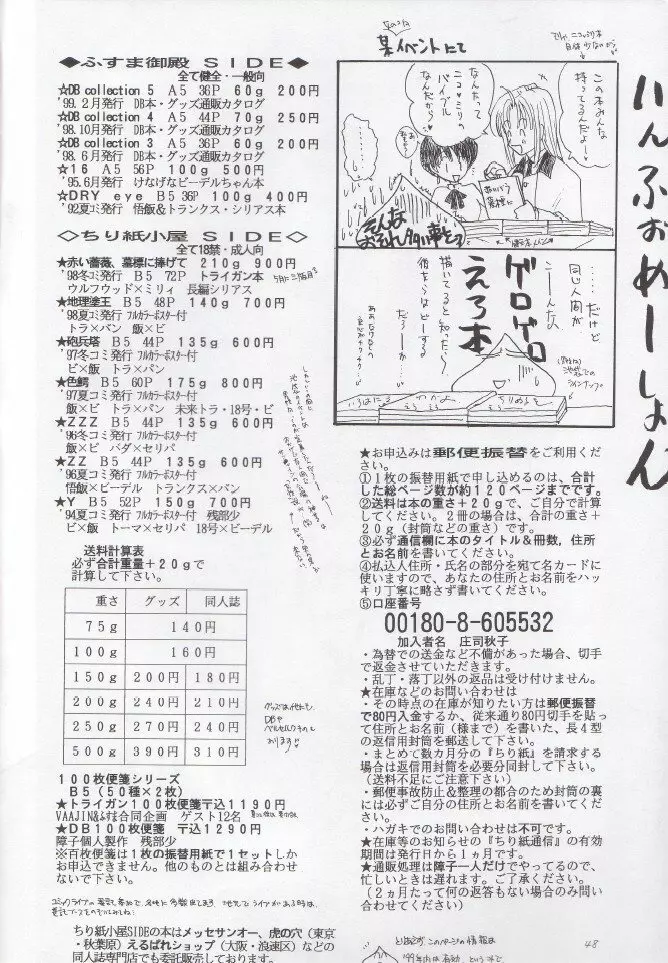 いんふぉめーしょん
◆ふすま御殿 SIDE◆
全て健全・一般向
☆DB collection 5 A5 36P 60g 200円
'99.2月発行 DB本・グッズ通販カタログ
☆DB collection 4 A5 44P 70g 250円
'98.10月発行 DB本・グッズ通販カタログ
☆DB collection 3 A5 36P 60g 200円
'98.6月発行 DB本・グッズ通販カタログ
☆16 A5 56P 100g 500円
'95.6月発行 けなげなビーデルちゃん本
☆DRY eye B5 36P 100g 400円
'92夏コミ発行 悟飯&トランクス・シリアス本
◇ちり紙小屋 SIDE◇
全て18禁・成人向
★赤い薔薇、墓標に捧げて 210g 900円
'98冬コミ発行 B5 72P トライガン本
ウルフウッド×ミリィ 長編シリアス
★地理塗王 B5 48P 140g 700円
'98夏コミ発行 フルカラーポスター付
トラ×パン 飯×ビ
★砲兵塔 B5 44P 135g 600円
'97冬コミ発行 フルカラーポスター付
ビ×飯 トラ×パン
★色鰐 B5 60P 175g 800円
'97夏コミ発行 フルカラーポスター付
飯×ビ トラ×パン 未来トラ・18号・ビ
★ZZZ B5 44P 135g 600円
'96冬コミ発行 フルカラーポスター付
飯×ビ バダ×セリパ
★ZZ B5 44P 135g 600円
'96夏コミ発行 フルカラーポスター付
悟飯×ビーデル トランクス×パン
★Y B5 52P 150g 700円
'94夏コミ発行 フルカラーポスター付 残部少
ビ×飯 トーマ×セリパ 18号×ビーデル
送料計算表
必ず合計重量+20gで
計算して下さい。
重さ グッズ 同人誌
75g 140円
100g 160円
150g 200円 180円
200g 240円 210円
250g 270円 240円
500g 390円 310円
グッズは他にも
DBや
ベルセルクのも
あります♡
100枚便箋シリーズ
B5(50種×2枚)
★トライガン100枚便箋〒込1190円
VAAJIN&る村合同企画 ゲスト12名
★DB100枚便箋 〒込1290円
障子個人製作 残部少
※百枚便箋は1枚の振替用紙で1セットしか
お申込できません。他のものとは組み合わせ
ないで下さい。
ちり紙小屋SIDEの本はメッセサンオー、虎の穴(東京
・秋葉原)えるぱれショップ(大阪・浪速区)などの
同人誌専門店でも委託販売しております。
某イベントにて
この本みんな
持ってるんだよー♡
なんたって
ニコ×ミリの
バイブル
なんだから♡
ありがとう
ございます
そんな
おそれ多い事をっ
……だけど
同じ人間が
こーんなの
ゲロゲロ
えろ本
描いてると知ったら
彼女らはどーする
だろーか…
★お申込みは郵便振替をご利用くだ
さい。
①1枚の振替用紙で申し込めるのは、合計
した総ページ数が約120ページまでです。
②送料は本の重さ+20gで、ご自分で計算
してください。2冊の場合は、合計の重さ+
20g(封筒などの重さ)です。
③必ず通信欄に本のタイトル&冊数、住所
とお名前を書いてください。
④払込人住所・氏名の部分を宛て名カードに
使いますので、あなたの住所とお名前をハッ
キリ丁寧に略さず書いてください。
⑤口座番号
00180-8-605532
加入者名 庄司秋子
・為替での送金など不備があった場合、切手
で返金させていただきます。
・乱丁・落丁以外の返品は受け付けません。
★在庫などのお問い合わせは
・その時点の在庫が知りたい方は郵便振替
で80円入金するか、従来通り80円切手を貼っ
て住所とお名前(様まで)を書いた、長4型
の返信用封筒を郵送して下さい。
・まとめて数カ月分の『ちり紙』を請求する
場合は返信用封筒を必要分同封して下さい。
(送料不足にご注意下さい)
・郵便事故防止&整理の都合のため封筒の裏
には必ずご自分の住所とお名前を書いてくだ
さい。
・ハガキでのお問い合わせは不可です。
★在庫等のお知らせの『ちり紙通信』の有効
期間は発行日から1ヵ月です。
★通販処理は障子一人だけでやってるので、
忙しいときは遅れます。ご了承ください。
(2ヵ月たって何の返答もない場合のみ問い
合わせてください)
とりあえず このページの情報は
48